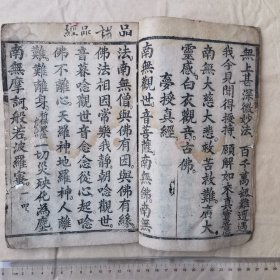 無上甚深微妙法百千萬劫難遭遇
我今見聞得授持願解如來真實意
南無大慈大悲救苦救難廣大
靈感白衣觀世音
夢授真經
南無觀世音菩薩南無佛南無
法南無僧與佛有因與佛有緣
佛法相因常樂我靜朝念觀世
音暮念觀世音念念從心起念
佛不離心天羅神地羅神人離
難難離身一切災殃化為塵
南無摩訶般若波羅蜜
經品諸品